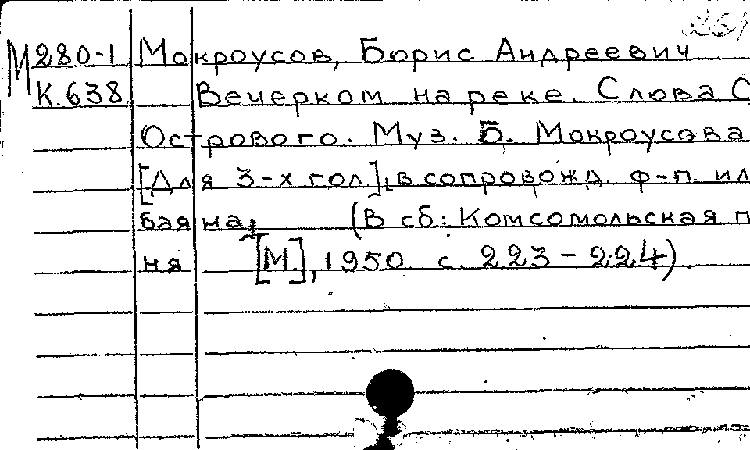 251
М 280-1 Мокроусов, Борис Андреевич
К.638 Вечерком на реке. Слова С
Острового. Муз. Б. Мокроусова
[Для 3-х гол.], в сопровожд. ф-п. ил
баяна, (В сб: Комсомольская п
ня [М.], 1950 с. 223-224).